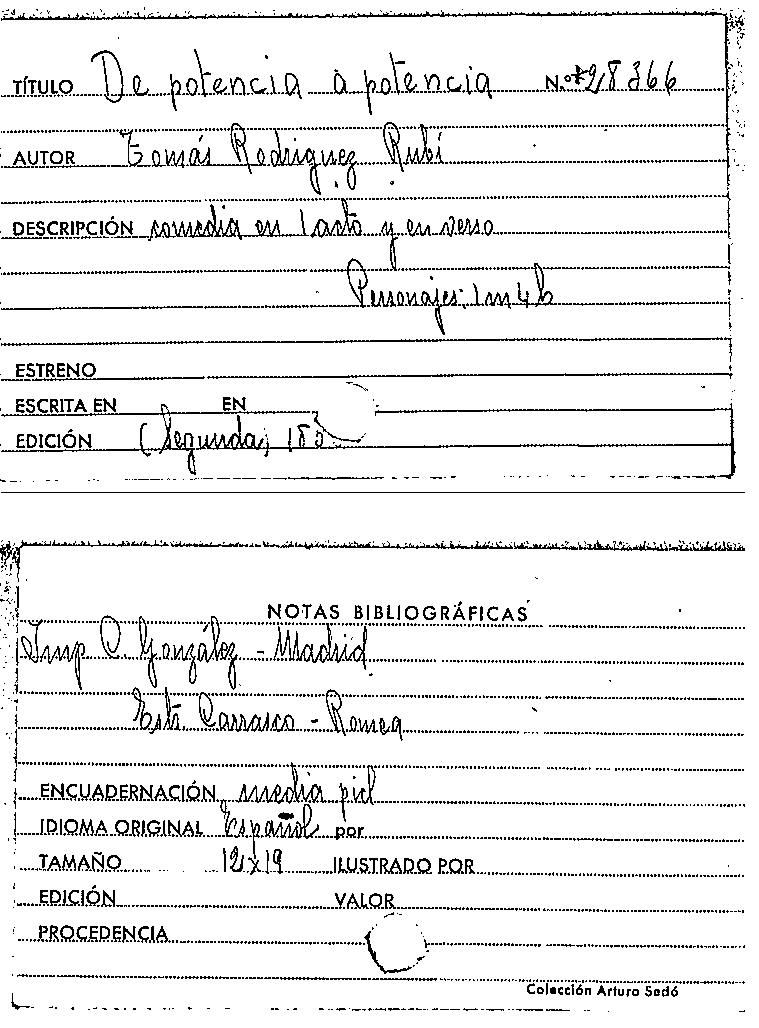 TÍTULO De potencia a potencia N.º *28366
AUTOR Tomás Rodriguez Rubí
DESCRIPCIÓN comedia en 1 acto y en verso
Personajes: 1 m 4 h
ESTRENO
ESCRITA EN EN
EDICIÓN (Segunda) 185
NOTAS BIBLIOGRÁFICAS
Imp C. González - Madrid
Estr. Carrasco - Romea
ENCUADERNACIÓN media piel
IDIOMA ORIGINAL Español por
TAMAÑO 12x19 ILUSTRADO POR
EDICIÓN VALOR
PROCEDENCIA
Colección Arturo Sedó